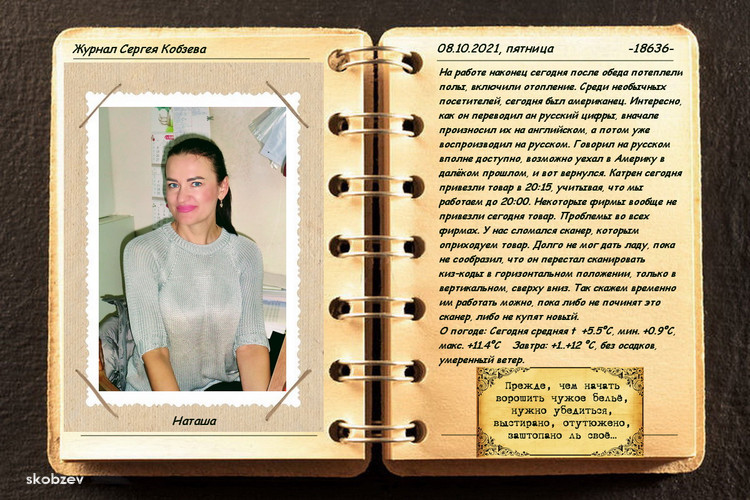 Журнал Сергея Кобзева
Наташа
08.10.2021, пятница -18636-
На работе наконец сегодня после обеда потеплели
полы, включили отопление. Среди необычных
посетителей, сегодня был американец. Интересно,
как он переводил ан русский цифры, вначале
произносил их на английском, а потом уже
воспроизводил на русском. Говорил на русском
вполне доступно, возможно уехал в Америку в
далёком прошлом, и вот вернулся. Катрен сегодня
привезли товар в 20:15, учитывая, что мы
работаем до 20:00. Некоторые фирмы вообще не
привезли сегодня товар. Проблемы во всех
фирмах. У нас сломался сканер, которым
оприходуем товар. Долго не мог дать ладу, пока
не сообразил, что он перестал сканировать
киз-коды в горизонтальном положении, только в
вертикальном, сверху вниз. Так скажем временно
им работать можно, пока либо не починят это
сканер, либо не купят новый.
О погоде: Сегодня средняя t +5.5°C, мин. +0.9°C,
макс. +11.4°C Завтра: +1..+12 °C, без осадков,
умеренный ветер.
Прежде, чем начать
ворошить чужое бельё,
нужно убедиться,
выстирано, отутюжено,
заштопано ль своё...
skobzev